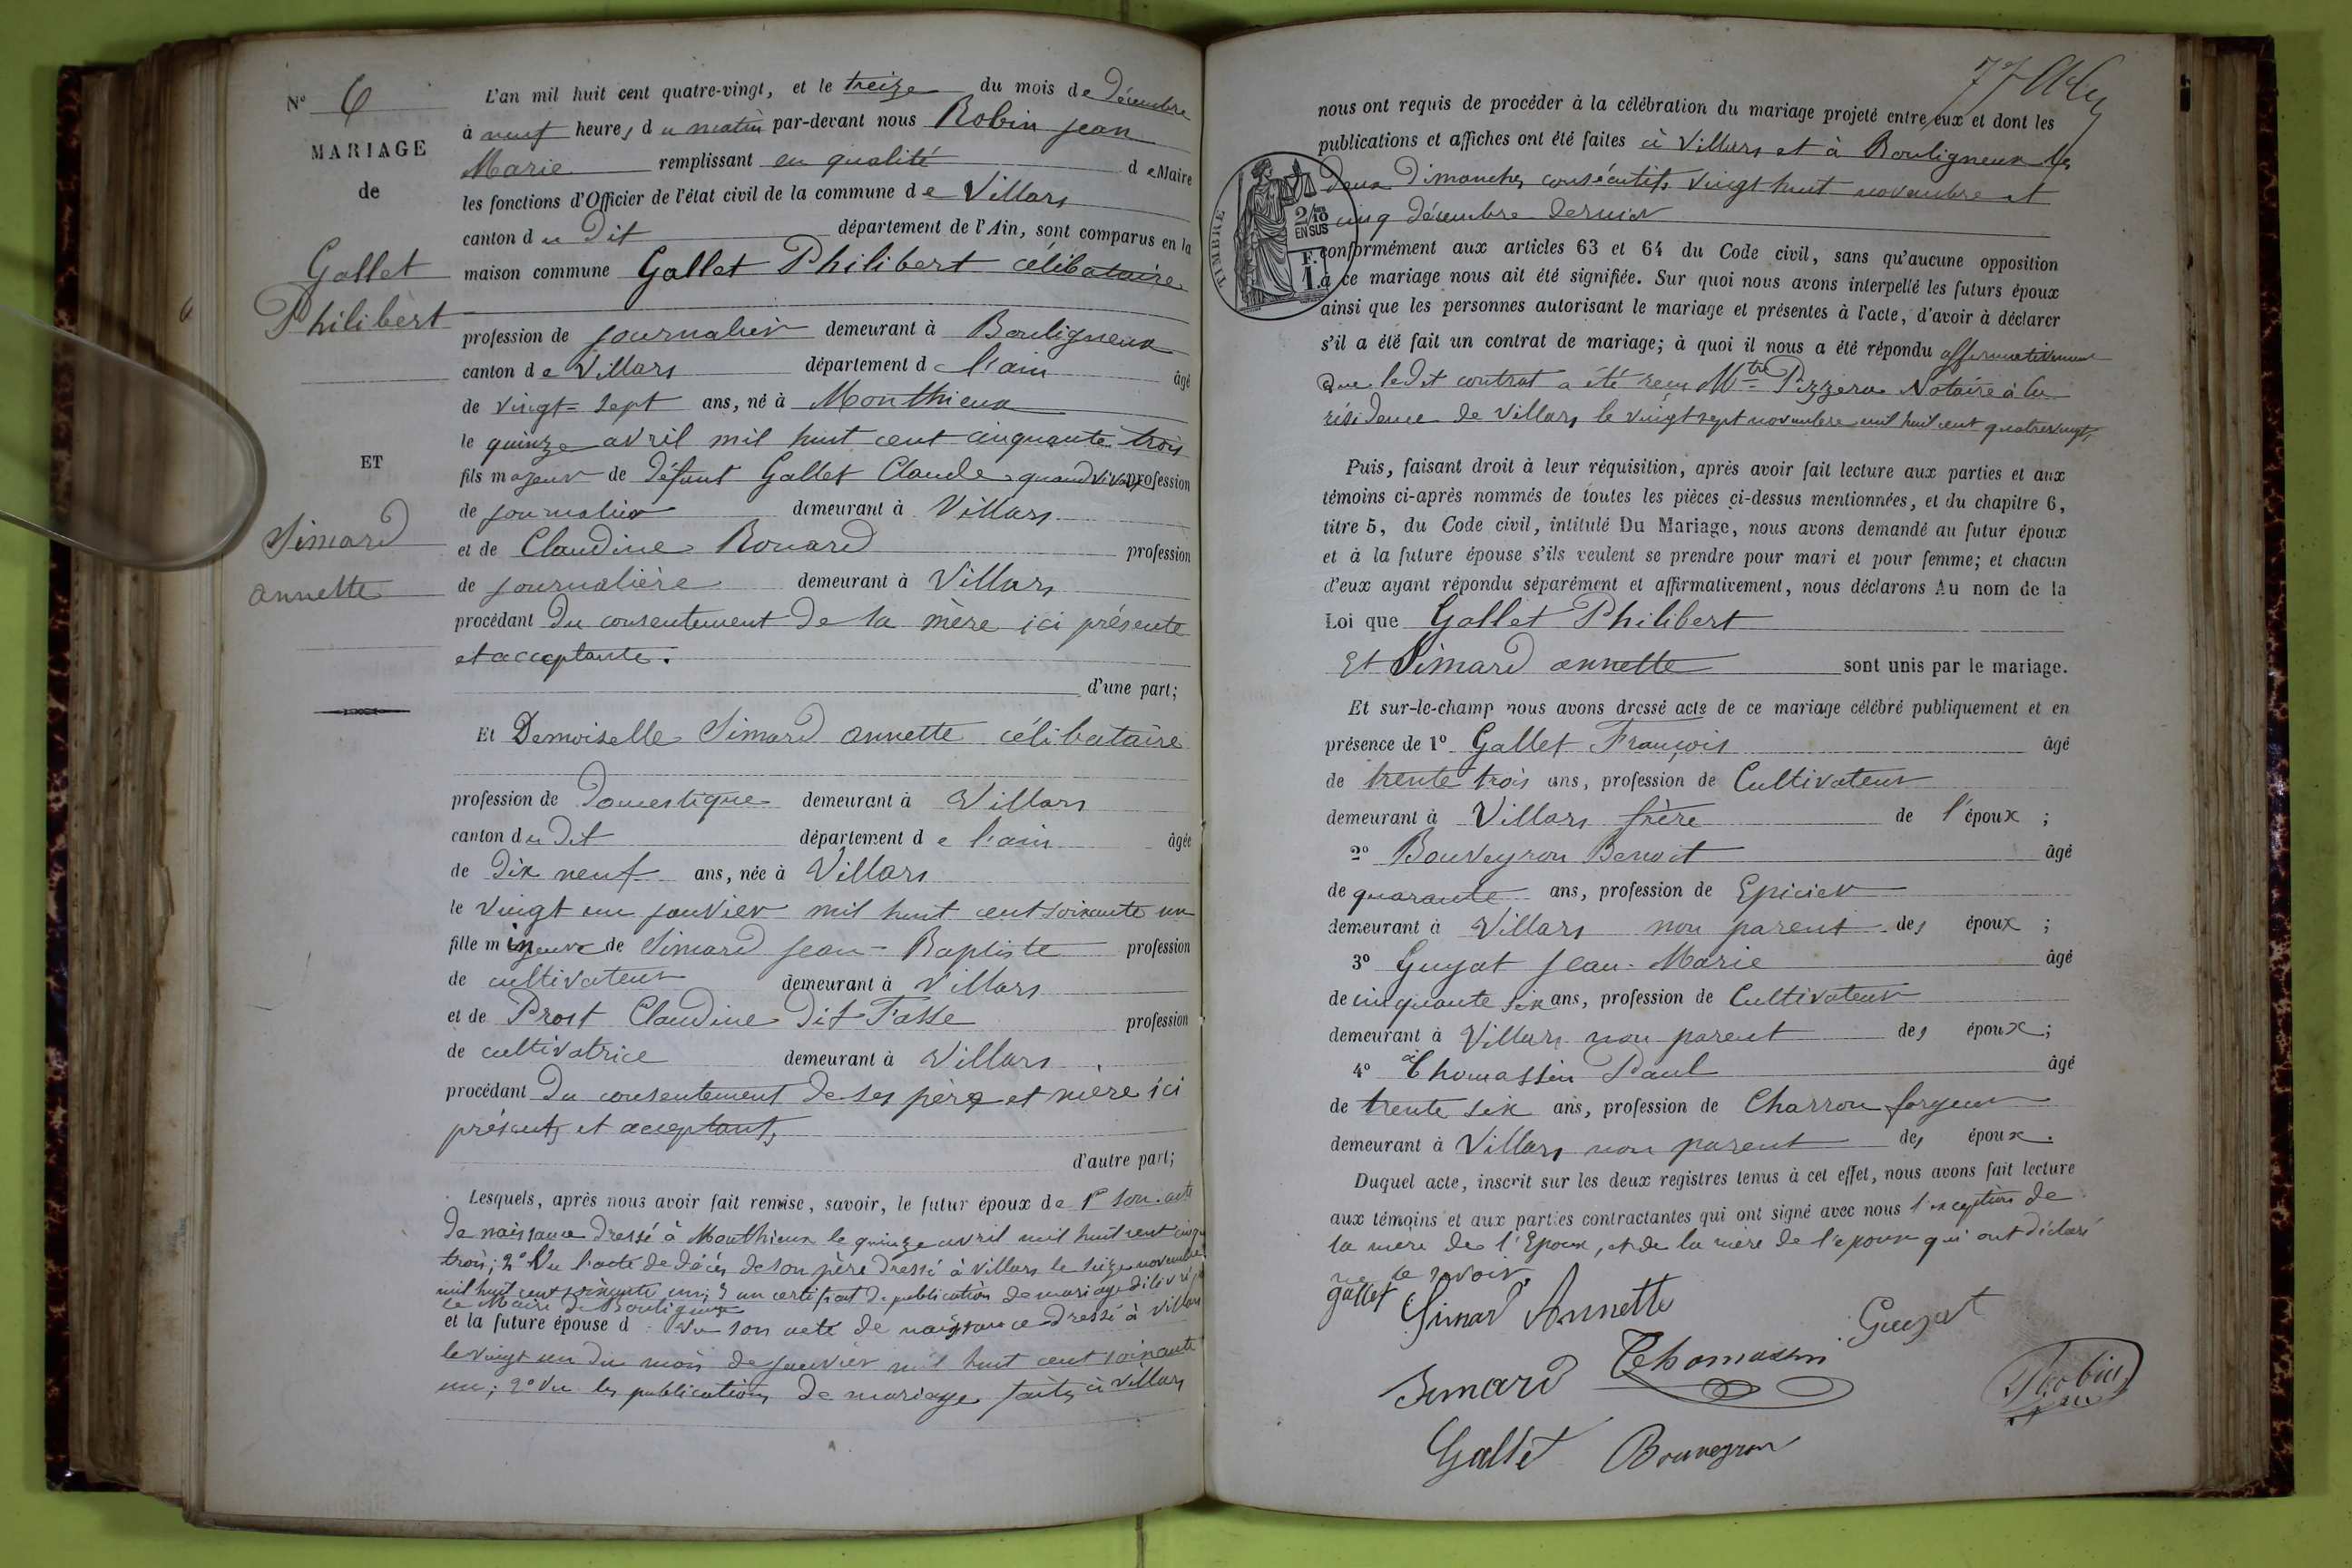 N° 6
MARIAGE
de
Gallet
Philibert
ET
Simard
annette
L'an mil huit cent quatre-vingt, et le treize du mois de Décembre
à neuf heures du matin par-devant nous Robin Jean
Marie remplissant en qualité de Maire
les fonctions d'Officier de l'état civil de la commune de Villars
canton du Dit département de l'Ain, sont comparus en la
maison commune Gallet Philibert célibataire
profession de journalier demeurant à Bouligneux
canton de Villars département de l'ain âgé
de vingt-sept ans, né à Monthieux
le quinze avril mil huit cent cinquante trois
fils majeur de défunt Gallet Claude quand vivait profession
de journalier demeurant à Villars
et de Claudine Rouard profession
de journalière demeurant à Villars
procédant du consentement de sa mère ici présente
et acceptante.
d'une part;
Et Demoiselle Simard annette célibataire
profession de Domestique demeurant à Villars
canton du Dit département de l'ain âgée
de Dix neuf ans, née à Villars
le vingt un janvier mil huit cent soixante un
fille mineure de Simard Jean-Baptiste profession
de cultivateur demeurant à Villars
et de Prost Claudine Dit Fasse profession
de cultivatrice demeurant à Villars
procédant du consentement de ses père et mère ici
présents et acceptants
d'autre part;
Lesquels, après nous avoir fait remise, savoir, le futur époux de 1° son acte
de naissance dressé à Monthieux le quinze avril mil huit cent cinq
trois; 2° Vu l'acte de décès de son père dressé à Villars le seize novembre
mil huit cent soixante un; 3 un certificat de publication de mariage délivré
le Maire de Bouligneux
et la future épouse d Vu son acte de naissance dressé à Villars
le vingt un du mois de janvier mil huit cent soixante
un; 2° Vu les publications de mariage faites à Villars
nous ont requis de procéder à la célébration du mariage projeté entre eux et dont les
publications et affiches ont été faites à Villars et à Bouligneux les
deux Dimanches consécutifs vingt huit novembre et
cinq décembre dernier
TIMBRE
2/10
EN SUS
F.
1.
conformément aux articles 63 et 64 du Code civil, sans qu'aucune opposition
à ce mariage nous ait été signifiée. Sur quoi nous avons interpellé les futurs époux
ainsi que les personnes autorisant le mariage et présentes à l'acte, d'avoir à déclarer
s'il a été fait un contrat de mariage; à quoi il nous a été répondu affirmativement
Que le dit contrat a été reçu Mtre Pizzera Notaire à la
résidence de Villars le vingt sept novembre mil huit cent quatrevingts
Puis, faisant droit à leur réquisition, après avoir fait lecture aux parties et aux
témoins ci-après nommés de toutes les pièces ci-dessus mentionnées, et du chapitre 6,
titre 5, du Code civil, intitulé Du Mariage, nous avons demandé au futur époux
et à la future épouse s'ils veulent se prendre pour mari et pour femme; et chacun
d'eux ayant répondu séparément et affirmativement, nous déclarons Au nom de la
Loi que Gallet Philibert
Et Simard annette sont unis par le mariage.
Et sur-le-champ nous avons dressé acte de ce mariage célébré publiquement et en
présence de 1° Gallet François âgé
de trente trois ans, profession de Cultivateur
demeurant à Villars frère de l'époux ;
2° Bouveyron Benoit âgé
de quarante ans, profession de Epicier
demeurant à Villars non parent des époux ;
3° Guyat Jean-Marie âgé
de cinquante six ans, profession de Cultivateur
demeurant à Villars non parent des époux;
4° Thomassin Paul âgé
de trente six ans, profession de Charron forgeur
demeurant à Villars non parent des époux.
Duquel acte, inscrit sur les deux registres tenus à cet effet, nous avons fait lecture
aux témoins et aux parties contractantes qui ont signé avec nous l'exception de
la mère de l'Epoux, et de la mère de l'epouse qui ont déclaré
ne le savoir.
gallet Simard Annette
Guyat
Simard Thomassin
Robin
Gallet Bouveyron